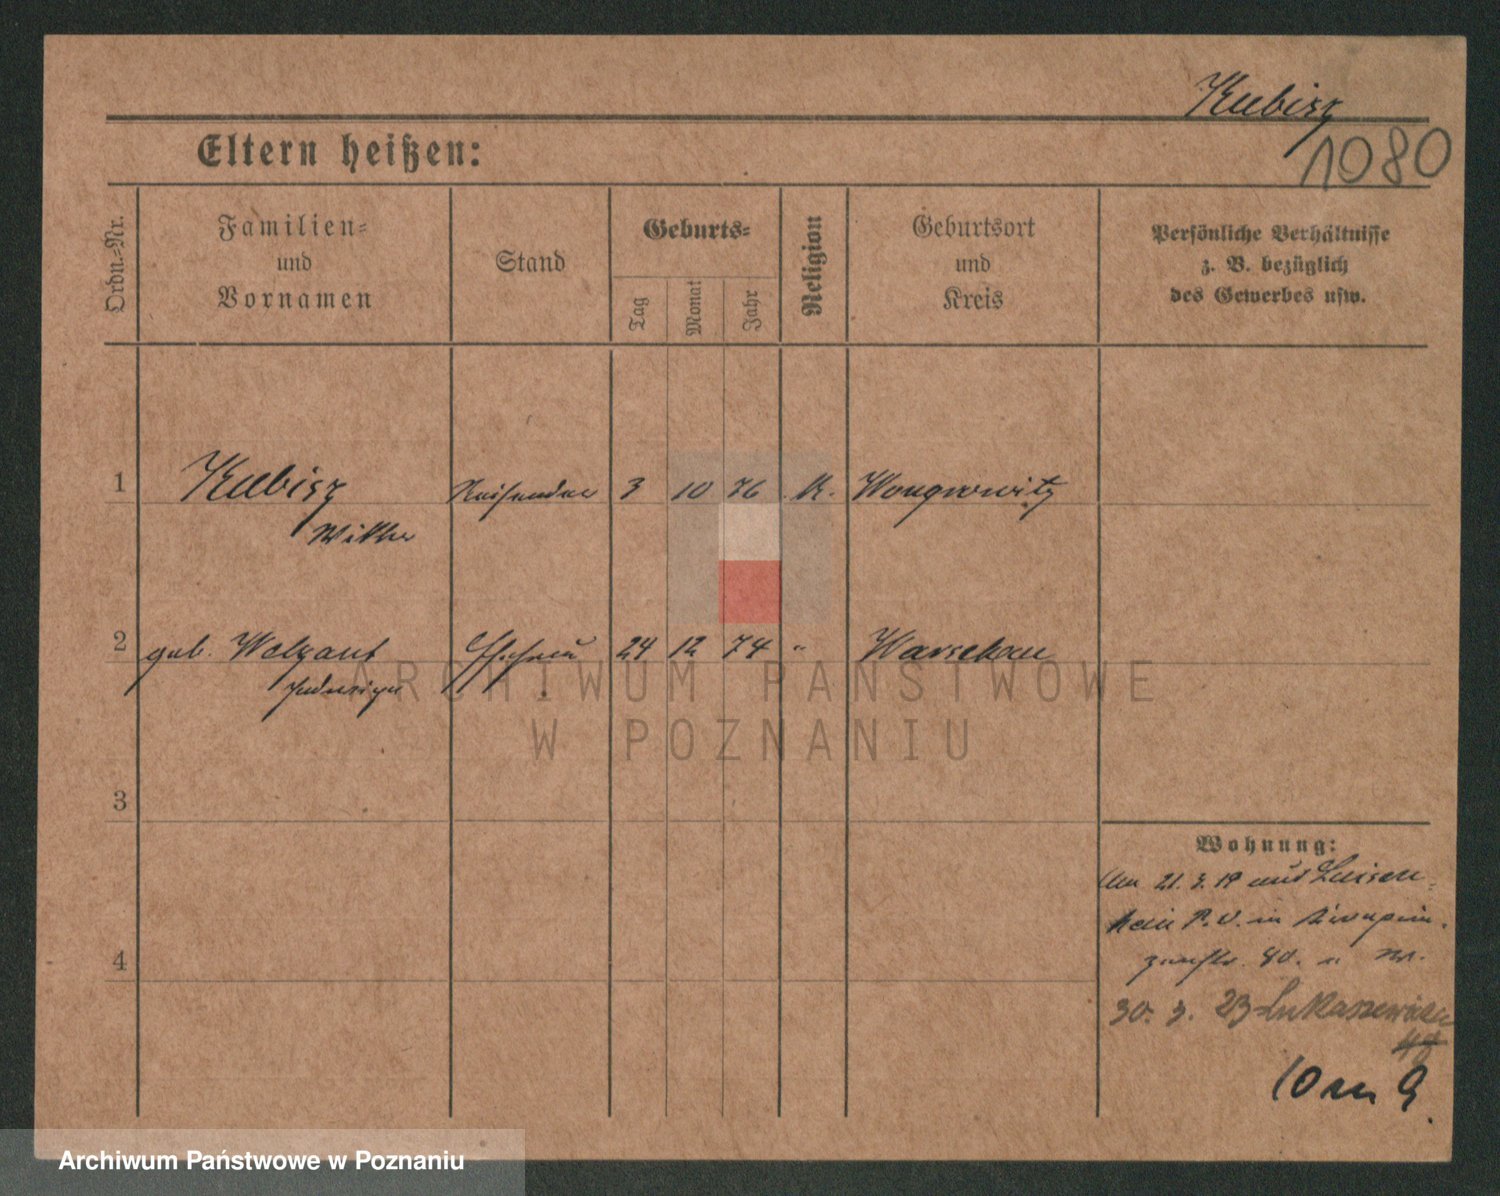 Kubisz
1080
Eltern heißen:
Ordn.=Nr.
Familien=
und
Vornamen
Stand
Geburts=
Tag
Monat
Jahr
Religion
Geburtsort
und
Kreis
Persönliche Verhältnisse
z. B. bezüglich
des Gewerbes usw.
1 Kubisz Reisender 3 10 76 K. Wongrowitz
Wiktor
2 geb. Walzant Ehefrau 24 12 74 " Warschau
Jadwiga
ARCHIWUM PAŃSTWOWE
W POZNANIU
3
4
Wohnung:
Am 21. 3. 19 aus Luisen-
hain P. O. in
40.
30. 3. 23 Łukaszewicza
10 m 9.
Archiwum Państwowe w Poznaniu